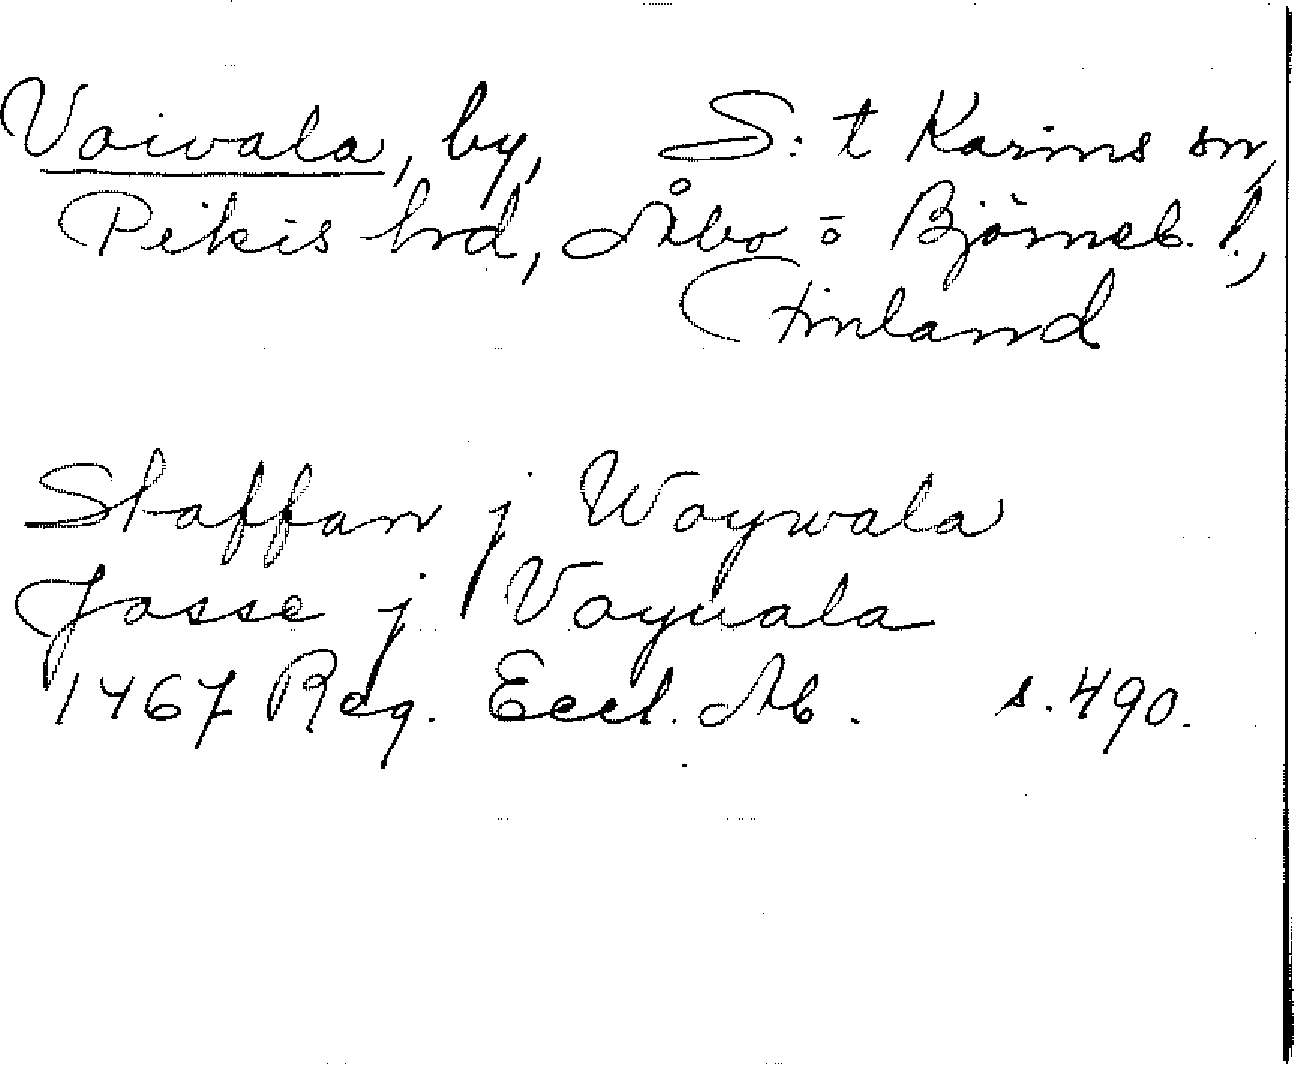 Voivala, by, S:t Karins sn,
Pikis hrd, Åbo o Björneb. l.,
Finland
Staffan j Woywala
Josse j Voyuala
1467 Reg. Eccl. Ab. s. 490.